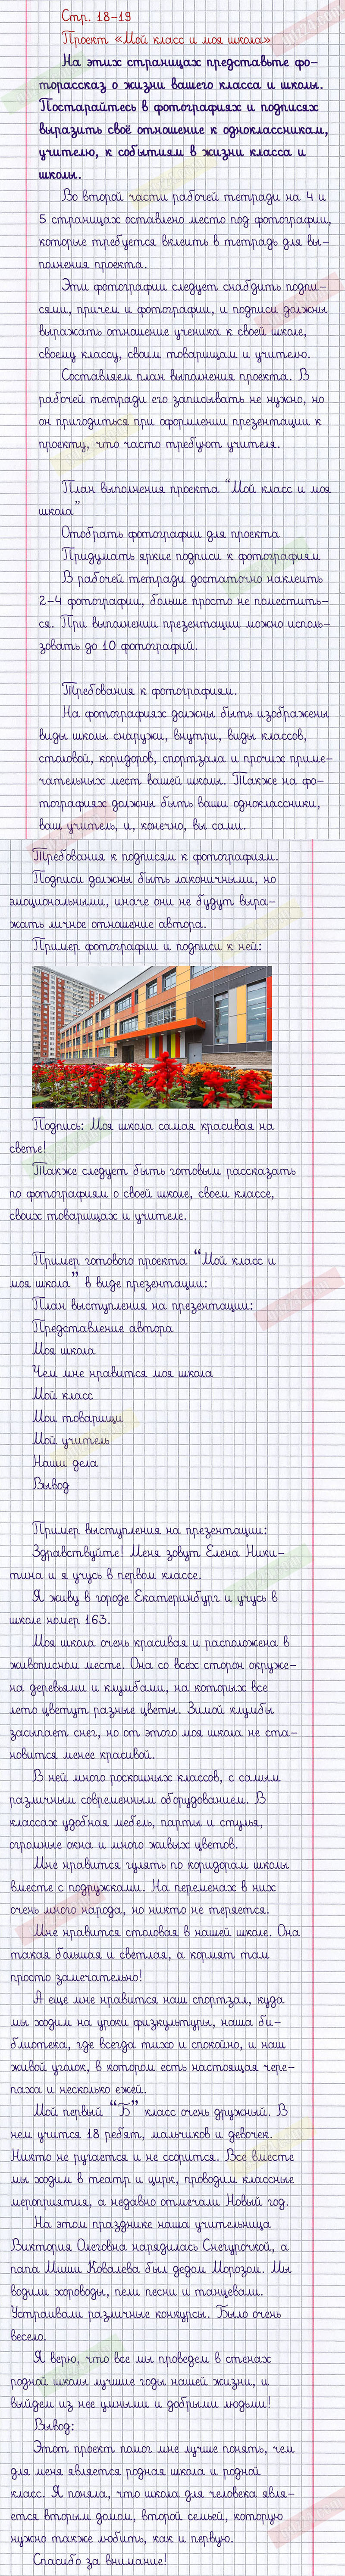 Стр. 18-19
Проект «Мой класс и моя школа»
На этих страницах представьте фо-
торассказ о жизни вашего класса и школы.
Постарайтесь в фотографиях и подписях
выразить своё отношение к одноклассникам,
учителю, к событиям в жизни класса и
школы.
Во второй части рабочей тетради на 4 и
5 страницах оставлено место под фотографии,
которые требуется вклеить в тетрадь для вы-
полнения проекта.
Эти фотографии следует снабдить подпи-
сями, причем и фотографии, и подписи должны
выражать отношение ученика к своей школе,
своему классу, своим товарищам и учителю.
Составляем план выполнения проекта. В
рабочей тетради его записывать не нужно, но
он пригодиться при оформлении презентации к
проекту, что часто требуют учителя.
План выполнения проекта “Мой класс и моя
школа”
Отобрать фотографии для проекта
Придумать яркие подписи к фотографиям
В рабочей тетради достаточно наклеить
2-4 фотографии, больше просто не поместить-
ся. При выполнении презентации можно исполь-
зовать до 10 фотографий.
Требования к фотографиям.
На фотографиях должны быть изображены
виды школы снаружи, внутри, виды классов,
столовой, коридоров, спортзала и прочих приме-
чательных мест вашей школы. Также на фо-
тографиях должны быть ваши одноклассники,
ваш учитель, и, конечно, вы сами.
Требования к подписям к фотографиям.
Подписи должны быть лаконичными, но
эмоциональными, иначе они не будут выра-
жать личное отношение автора.
Пример фотографии и подписи к ней:
Подпись: Моя школа самая красивая на
свете!
Также следует быть готовым рассказать
по фотографиям о своей школе, своем классе,
своих товарищах и учителе.
Пример готового проекта “Мой класс и
моя школа” в виде презентации:
План выступления на презентации:
Представление автора
Моя школа
Чем мне нравится моя школа
Мой класс
Мои товарищи
Мой учитель
Наши дела
Вывод
Пример выступления на презентации:
Здравствуйте! Меня зовут Елена Ники-
тина и я учусь в первом классе.
Я живу в городе Екатеринбург и учусь в
школе номер 163.
Моя школа очень красивая и расположена в
живописном месте. Она со всех сторон окруже-
на деревьями и клумбами, на которых все
лето цветут разные цветы. Зимой клумбы
засыпает снег, но от этого моя школа не ста-
новится менее красивой.
В ней много роскошных классов, с самым
различным современным оборудованием. В
классах удобная мебель, парты и стулья,
огромные окна и много живых цветов.
Мне нравится гулять по коридорам школы
вместе с подружками. На переменах в них
очень много народа, но никто не теряется.
Мне нравится столовая в нашей школе. Она
такая большая и светлая, а кормят там
просто замечательно!
А еще мне нравится наш спортзал, куда
мы ходим на уроки физкультуры, наша би-
блиотека, где всегда тихо и спокойно, и наш
живой уголок, в котором есть настоящая чере-
паха и несколько ежей.
Мой первый “Б” класс очень дружный. В
нем учится 18 ребят, мальчиков и девочек.
Никто не ругается и не ссорится. Все вместе
мы ходим в театр и цирк, проводим классные
мероприятия, а недавно отмечали Новый год.
На этом празднике наша учительница
Виктория Олеговна нарядилась Снегурочкой, а
папа Миши Ковалева был дедом Морозом. Мы
водили хороводы, пели песни и танцевали.
Устраивали различные конкурсы. Было очень
весело.
Я верю, что все мы проведем в стенах
родной школы лучшие годы нашей жизни, и
выйдем из нее умными и добрыми людьми!
Вывод:
Этот проект помог мне лучше понять, чем
для меня является родная школа и родной
класс. Я поняла, что школа для человека явля-
ется вторым домом, второй семьей, которую
нужно также любить, как и первую.
Спасибо за внимание!